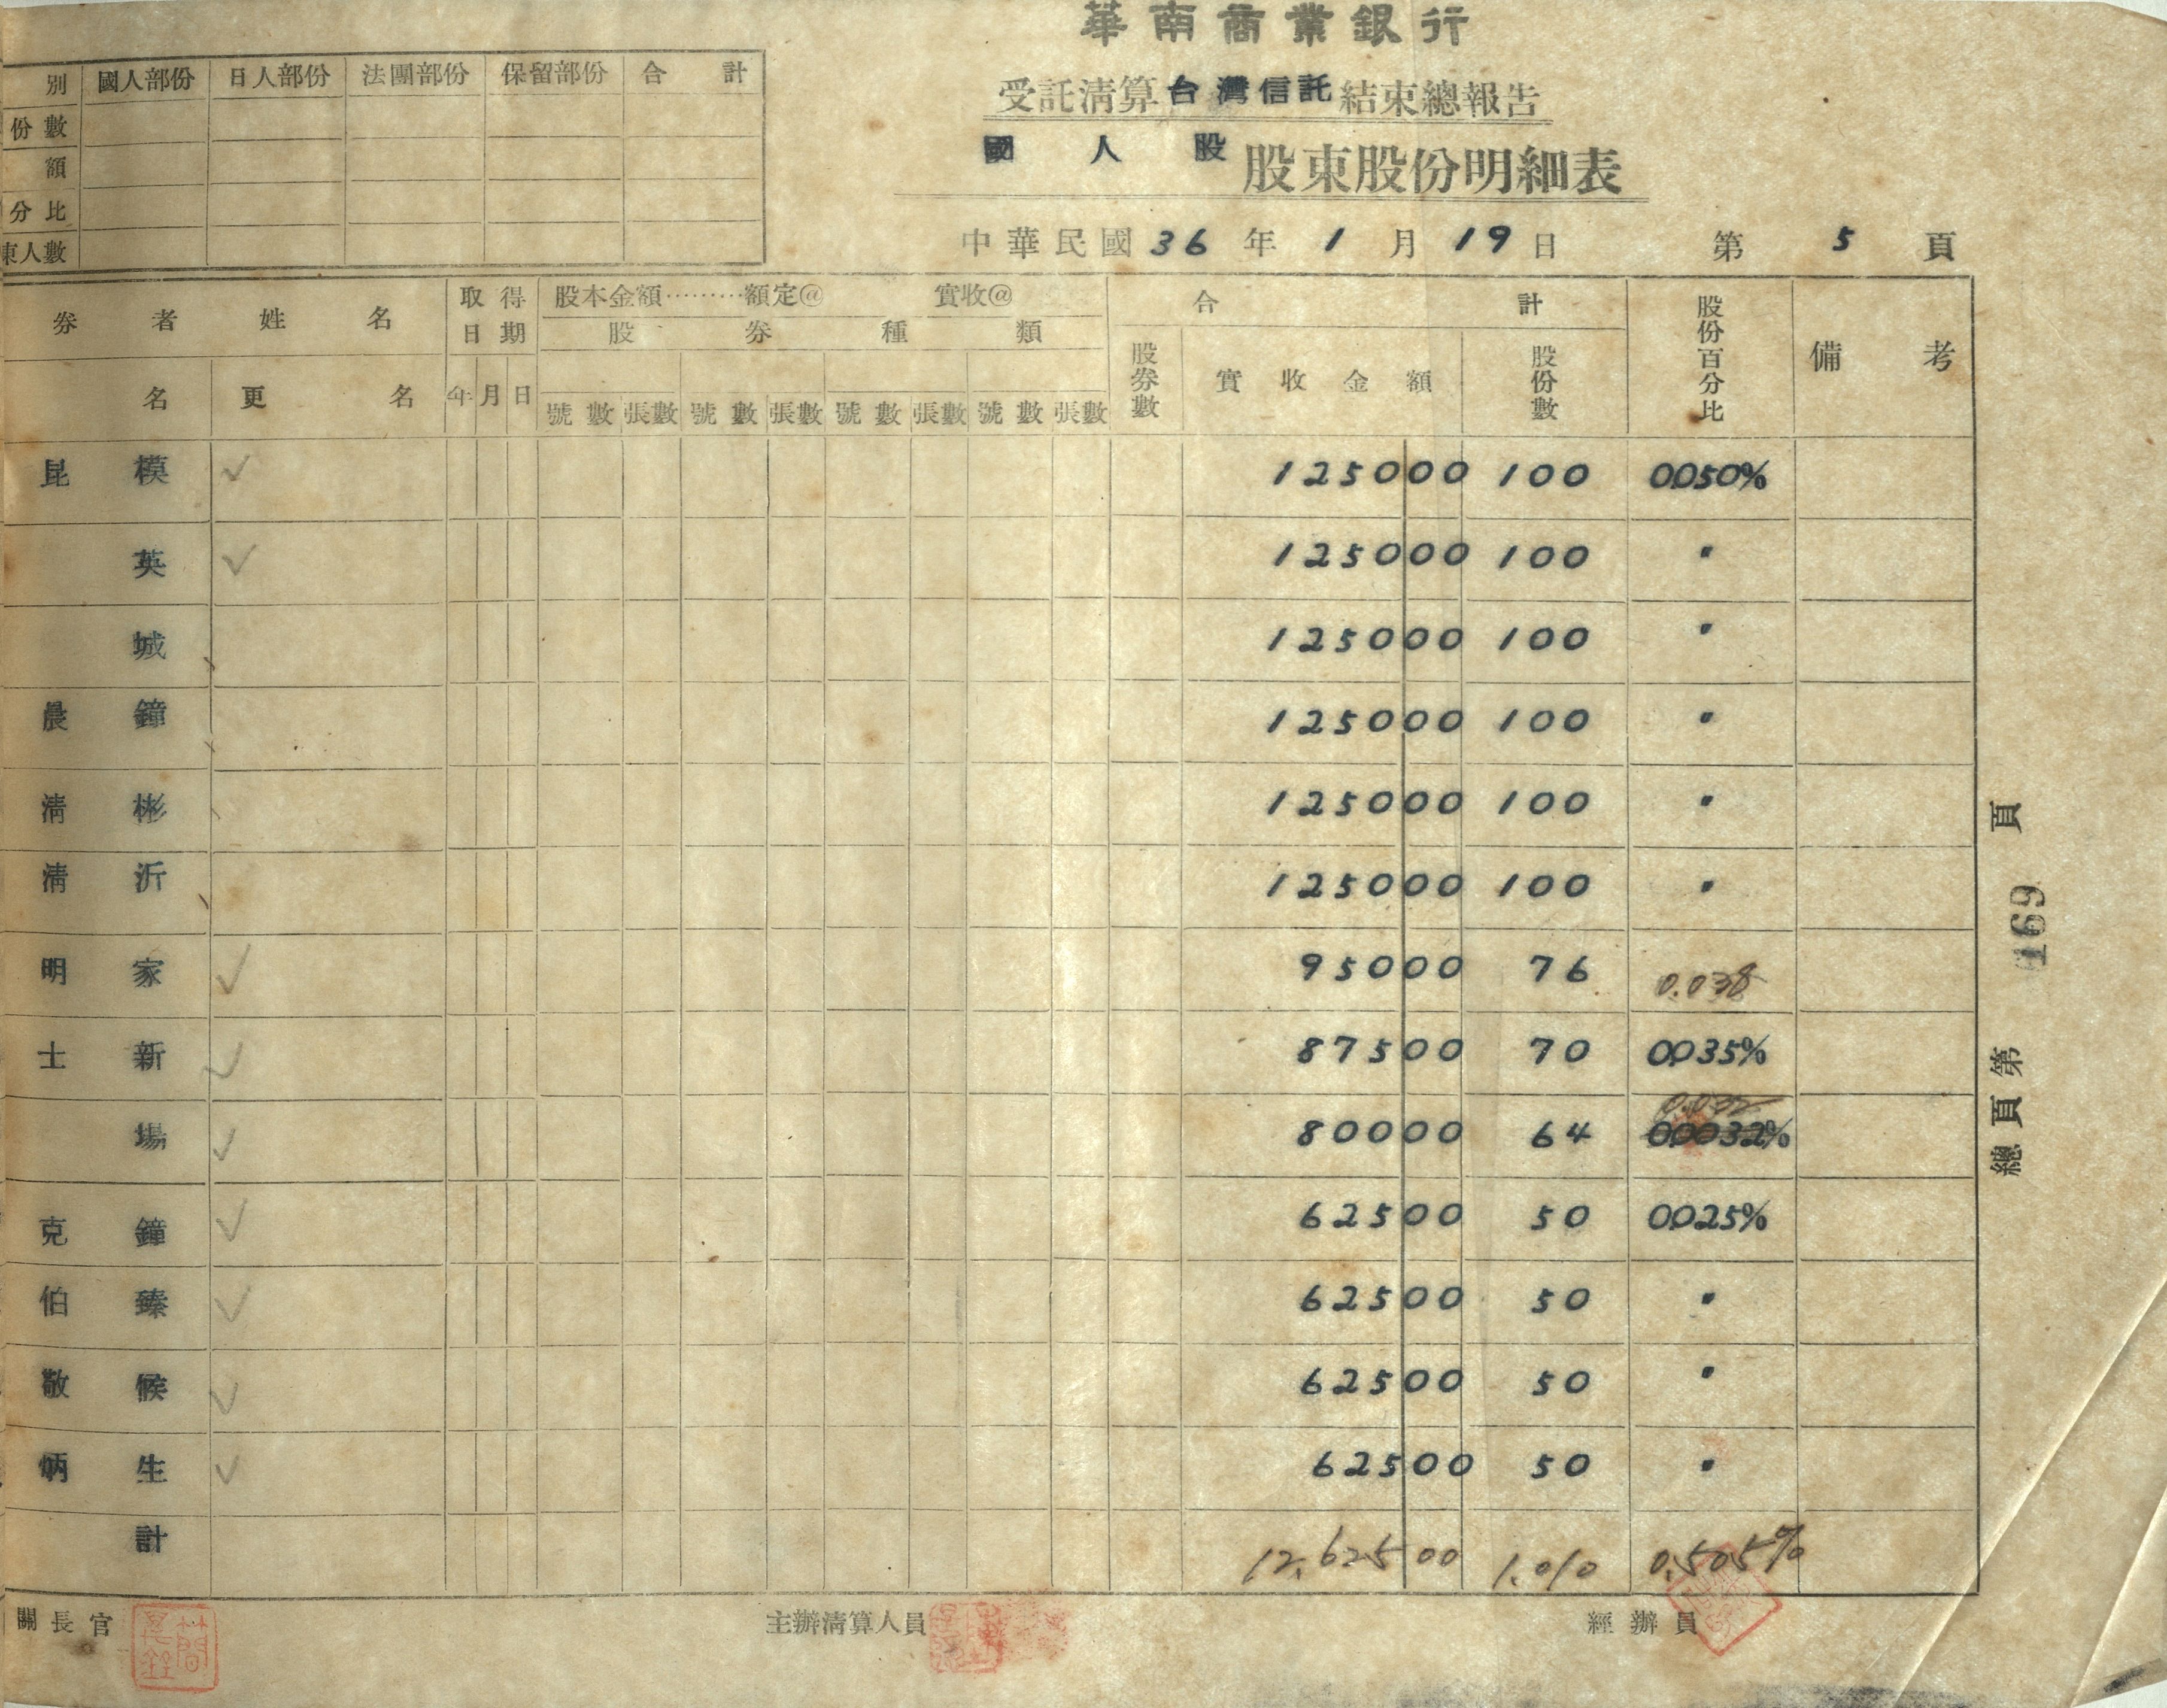 華南商業銀行
受託清算台灣信託結束總報告
國人股股東股份明細表
中華民國36年1月19日 第5頁
別 國人部份 日人部份 法團部份 保留部份 合計
份數
額
分比
東人數
券者姓名 取得日期 股本金額………額定@ 實收@ 合計 股份百分比 備考
股券種類
名 更名 年月日 號數 張數 號數 張數 號數 張數 號數 張數 股券數 實收金額 股份數
昆模 125000 100 0.050%
英 125000 100 〃
城 125000 100 〃
晨鐘 125000 100 〃
清彬 125000 100 〃
清沂 125000 100 〃
明家 95000 76 0.038
士新 87500 70 0.035%
0.032
場 80000 64 0.0032%
克鐘 62500 50 0.025%
伯臻 62500 50 〃
敬候 62500 50 〃
炳生 62500 50 〃
計 12,62500 1,010 0.505%
關長官 主辦清算人員 經辦員
總頁第169頁